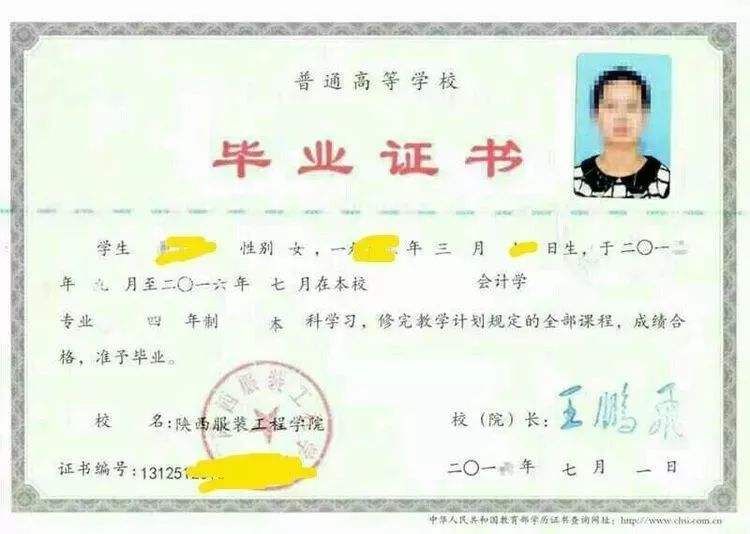 普通高等学校
毕业证书
学生 性别 女,一九 年 三 月 日生,于二〇一二
年 九 月至二〇一六年 七 月在本校 会计学
专业 四 年制 本 科学习,修完教学计划规定的全部课程,成绩合
格,准予毕业。
校 名:陕西服装工程学院
校(院)长:王鹏飞
证书编号:1312512
二〇一 年 七 月 一 日
中华人民共和国教育部学历证书查询网址:http://www.chsi.com.cn